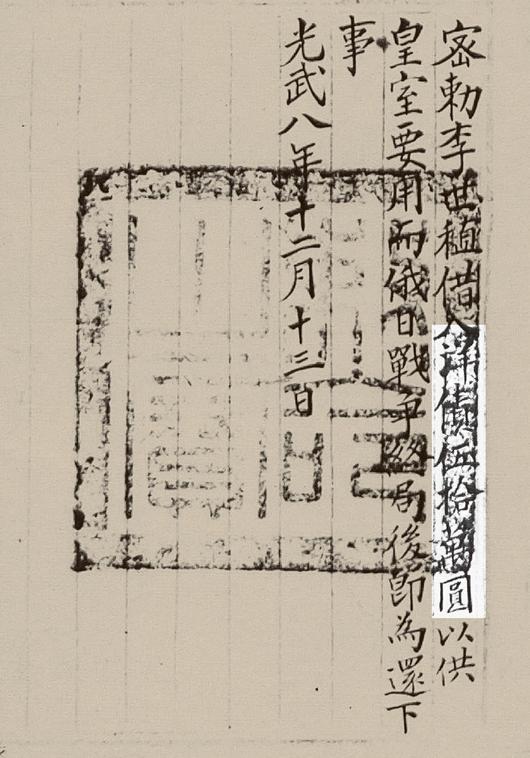 密勅李世稙借入洋債伍拾萬圓以供
皇室要用而俄日戰爭終局後即為還下
事
光武八年十二月十三日